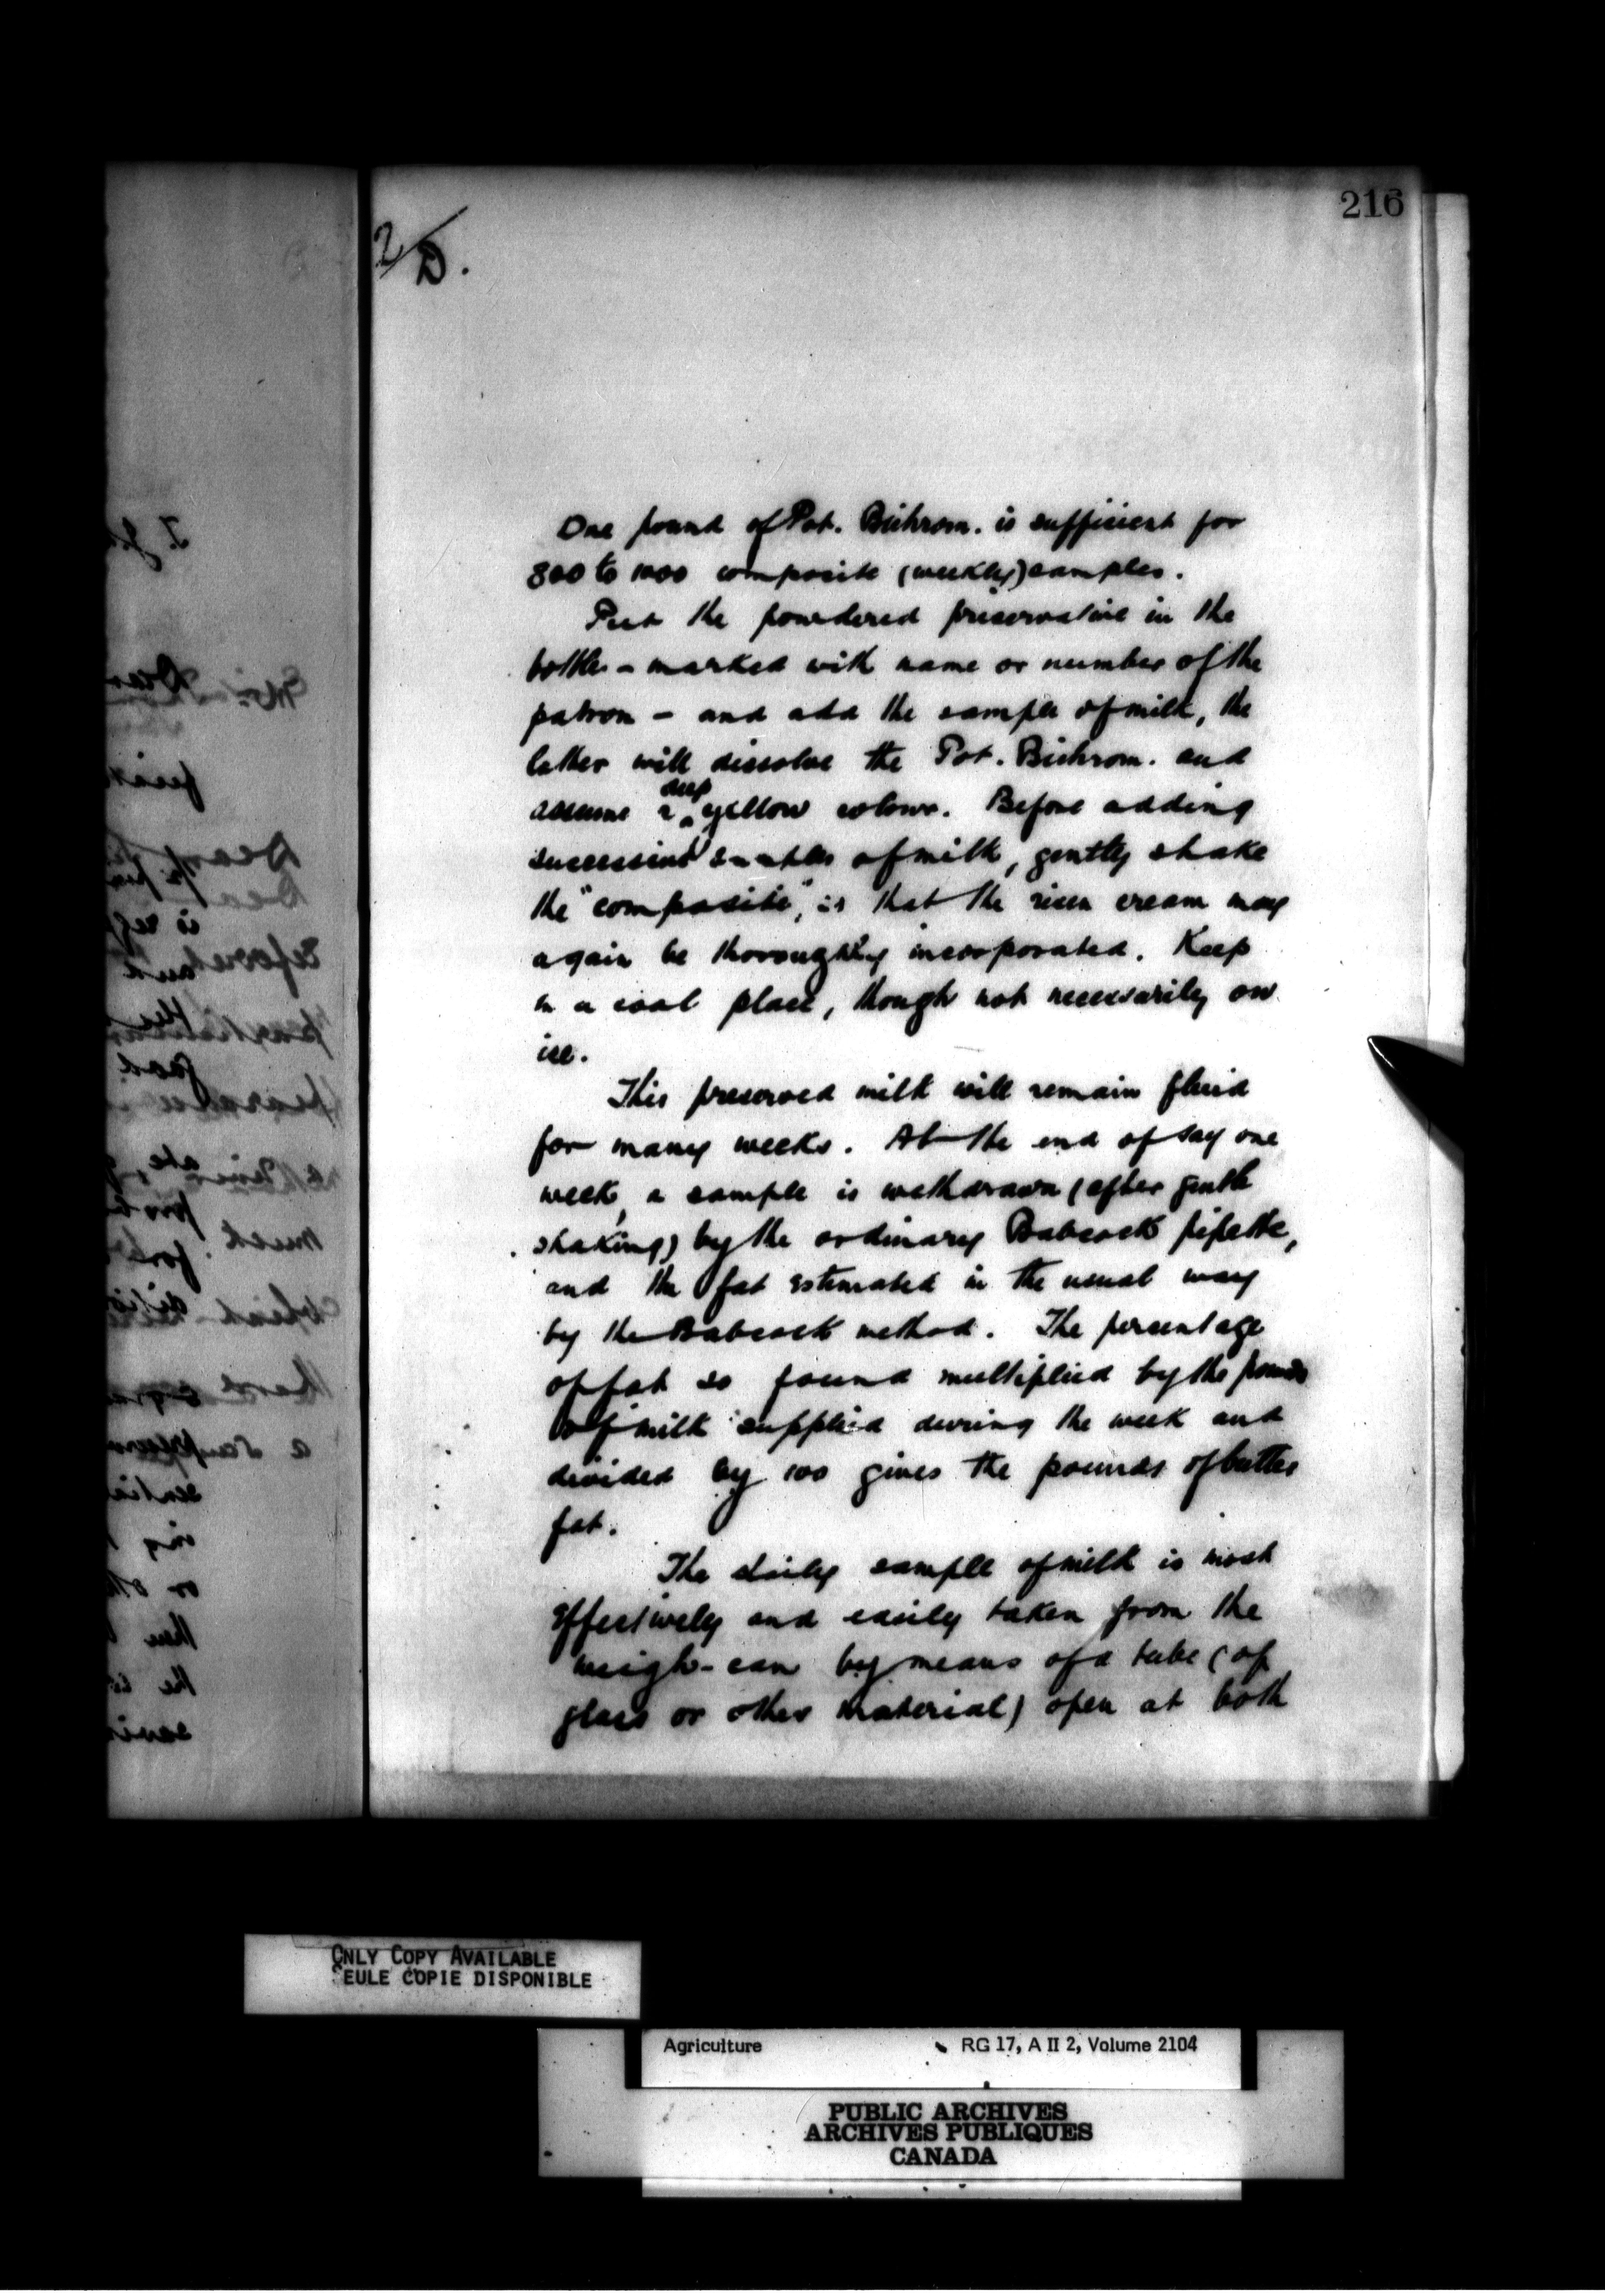 216
2/D.
One pound of Pot. Bichrom. is sufficient for
800 to 1000 composite (weekly) samples.
Put the powdered preservative in the
bottles - marked with name or number of the
patron - and add the sample of milk, the
latter will dissolve the Pot. Bichrom. and
assume a deep yellow colour. Before adding
successive samples of milk, gently shake
the "composite", so that the risen cream may
again be thoroughly incorporated. Keep
in a cool place, though not necessarily on
ice.
This preserved milk will remain fluid
for many weeks. At the end of say one
week, a sample is withdrawn (after gentle
shaking) by the ordinary Babcock pipette,
and the fat estimated in the usual way
by the Babcock method. The percentage
of fat so found multiplied by the pounds
of milk supplied during the week and
divided by 100 gives the pounds of butter
fat.
The daily sample of milk is most
effectively and easily taken from the
weigh-can by means of a tube (of
glass or other material) open at both
ONLY COPY AVAILABLE
SEULE COPIE DISPONIBLE
Agriculture RG 17, A II 2, Volume 2104
PUBLIC ARCHIVES
ARCHIVES PUBLIQUES
CANADA